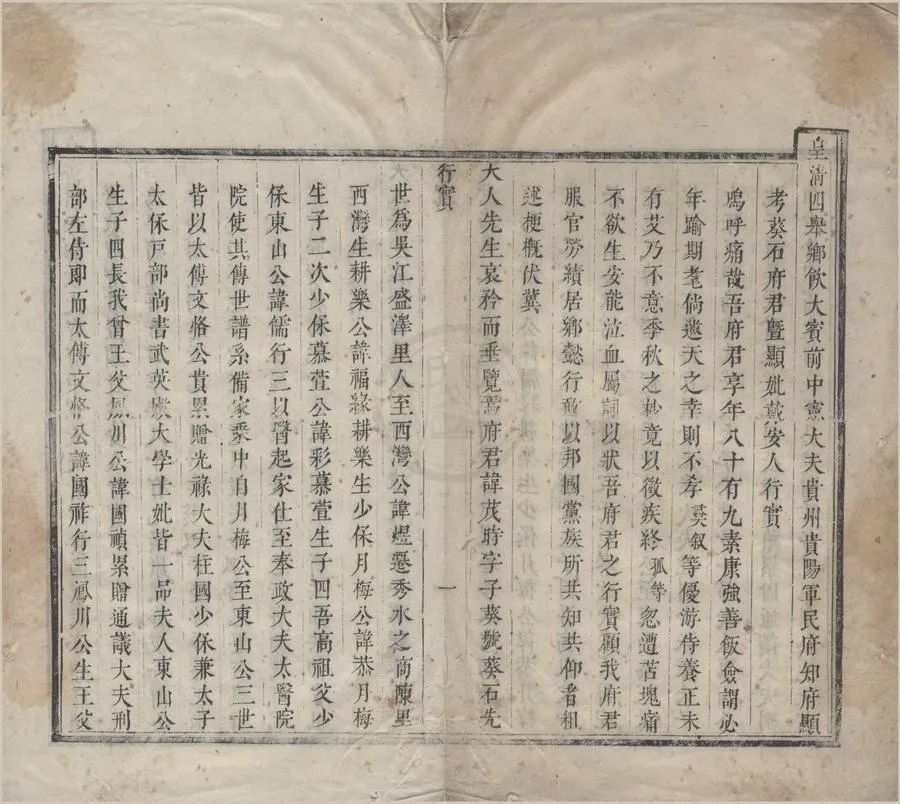 皇清四舉鄉飲大賓前中憲大夫貴州貴陽軍民府知府顯
考葵石府君暨顯妣戴安人行實
嗚呼痛哉吾府君享年八十有九素康強善飯僉謂必
年踰期耄倘邀天之幸則不孝葵叙等優游侍養正未
有艾乃不意季秋之杪竟以微疾終孤等忽遭苫塊痛
不欲生安能泣血屬詞以狀吾府君之行實顧我府君
服官勞績居鄉懿行敢以邦國黨族所共知共仰者粗
述梗概伏冀
大人先生哀矜而垂覽焉府君諱茂時字子葵號葵石先
行實
一
世為吳江盛澤里人至西灣公諱煜遷秀水之商陳里
西灣生耕樂公諱福緣耕樂生少保月梅公諱恭月梅
生子二次少保慕萱公諱彩慕萱生子四吾高祖父少
保東山公諱儒行三以醫起家仕至奉政大夫太醫院
院使其傳世譜系備家乘中自月梅公至東山公三世
皆以太傅文恪公貴累贈光祿大夫柱國少保兼太子
太保戶部尚書武英殿大學士妣皆一品夫人東山公
生子四長我曾王父鳳川公諱國禎累贈通議大夫刑
部左侍郎而太傅文恪公諱國祚行三鳳川公生王父